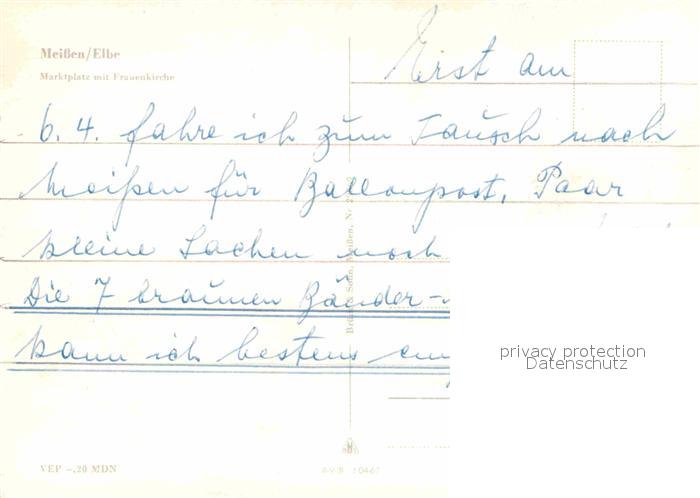 Meißen/Elbe
Marktplatz mit Frauenkirche
Erst am
6. 4. fahre ich zum Tausch nach
Meißen für Ballonpost. Paar
kleine Sachen noch
Die 7 braunen Bänder-
kann ich bestens
privacy protection
Datenschutz
VEP -,20 MDN